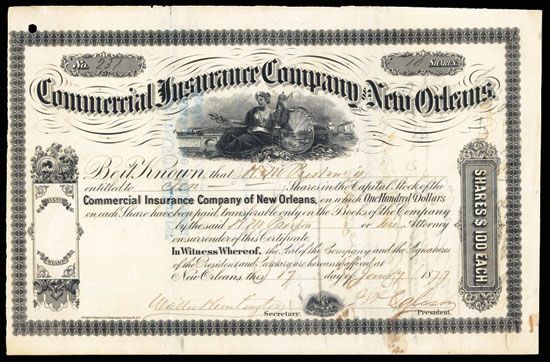 No. 231
10 SHARES
Commercial Insurance Company of New Orleans.
Be it Known, that
is
entitled to Ten Shares in the Capital Stock of the
Commercial Insurance Company of New Orleans, on which One Hundred Dollars
on each Share have been paid, transferable only on the Books of the Company
by the said or his Attorney
on surrender of this Certificate.
In Witness Whereof, the Seal of the Company and the Signatures
of the President and Secretary are hereunto affixed, at
New Orleans, this 17 day of January 1877
Secretary.
President.
SHARES $100 EACH.